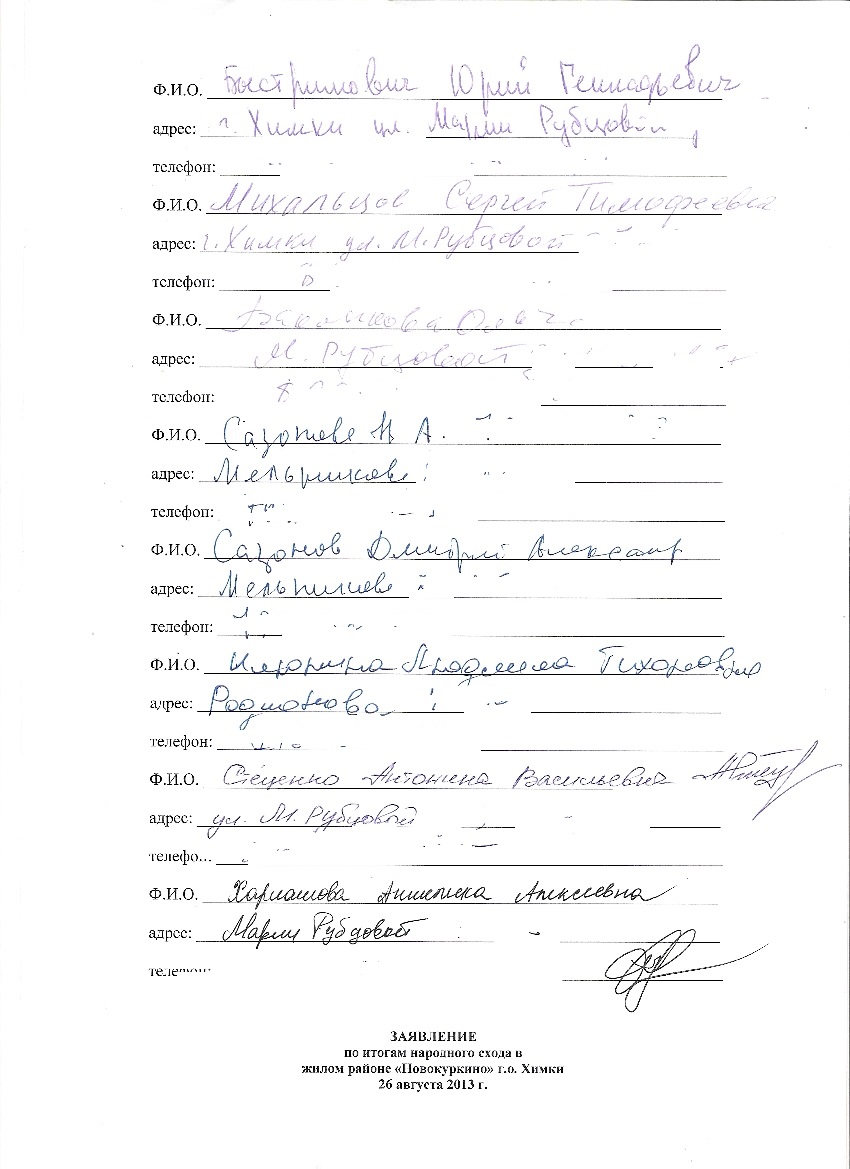 Ф.И.О. Быстримович Юрий Геннадьевич
адрес: г. Химки ул. Марии Рубцовой
телефон:
Ф.И.О. Михальцов Сергей Тимофеевич
адрес: г. Химки ул. М. Рубцовой
телефон:
Ф.И.О.
адрес: М. Рубцовой
телефон:
Ф.И.О. Сазонова Н А.
адрес: Мельникова
телефон:
Ф.И.О. Сазонов Дмитрий Александр
адрес: Мельникова
телефон:
Ф.И.О. Людмила Тихоновна
адрес: Родионова
телефон:
Ф.И.О. Стеценко Антонина Васильевна
адрес: ул. М. Рубцовой
телефо...
Ф.И.О. Харлашова Анжелика Алексеевна
адрес: Марии Рубцовой
телефон:
ЗАЯВЛЕНИЕ
по итогам народного схода в
жилом районе «Новокуркино» г.о. Химки
26 августа 2013 г.